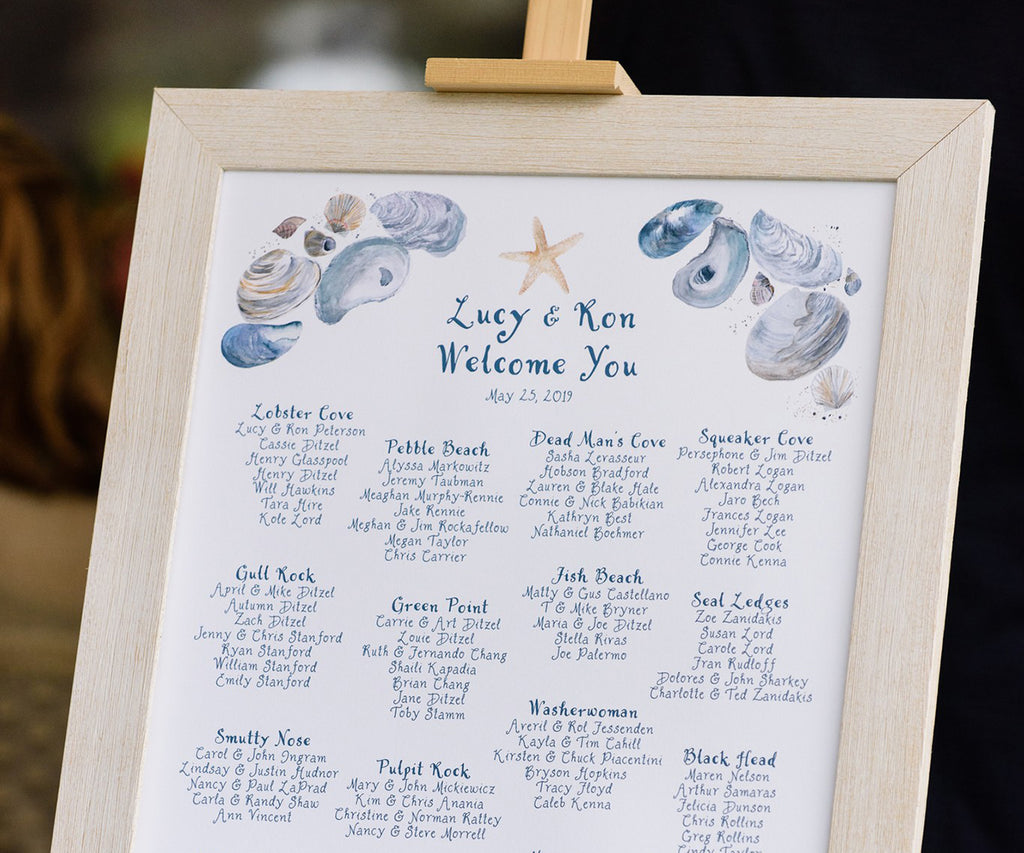 Lucy & Ron
Welcome You
May 25, 2019
Lobster Cove
Lucy & Ron Peterson
Cassie Ditzel
Henry Glasspool
Henry Ditzel
Will Hawkins
Tara Hire
Kote Lord
Pebble Beach
Alyssa Markowitz
Jeremy Taubman
Meaghan Murphy-Rennie
Jake Rennie
Meghan & Jim Rockafellow
Megan Taylor
Chris Carrier
Dead Man's Cove
Sasha Levasseur
Hobson Bradford
Lauren & Blake Hale
Connie & Nick Babikian
Kathryn Best
Nathaniel Boehmer
Squeaker Cove
Persephone & Jim Ditzel
Robert Logan
Alexandra Logan
Jaro Bech
Frances Logan
Jennifer Lee
George Cook
Connie Kenna
Gull Rock
April & Mike Ditzel
Autumn Ditzel
Zach Ditzel
Jenny & Chris Stanford
Ryan Stanford
William Stanford
Emily Stanford
Green Point
Carrie & Art Ditzel
Louie Ditzel
Ruth & Fernando Chang
Shaili Kapadia
Brian Chang
Jane Ditzel
Toby Stamm
Fish Beach
Matty & Gus Castellano
T & Mike Bryner
Maria & Joe Ditzel
Stella Rivas
Joe Palermo
Seal Ledges
Zoe Zanidakis
Susan Lord
Carole Lord
Fran Rudloff
Dolores & John Sharkey
Charlotte & Ted Zanidakis
Smutty Nose
Carol & John Ingram
Lindsay & Justin Hudnor
Nancy & Paul LaPrad
Carla & Randy Shaw
Ann Vincent
Pulpit Rock
Mary & John Mickiewicz
Kim & Chris Anania
Christine & Norman Rattey
Nancy & Steve Morrell
Washerwoman
Averil & Rol Fessenden
Kayla & Tim Cahill
Kirsten & Chuck Piacentini
Bryson Hopkins
Tracy Floyd
Caleb Kenna
Black Head
Maren Nelson
Arthur Samaras
Felicia Dunson
Chris Rollins
Greg Rollins
Cindy Taylor